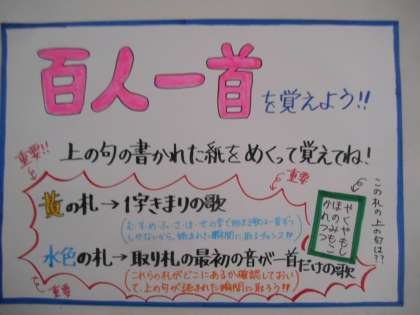 百人一首
を覚えよう!!
重要!!
上の句の書かれた紙をめくって覚えてね!
重要
黄の札→1字きまりの歌
(む・す・め・ふ・さ・ほ・せの字で始まる歌は一首ずつ
しかないから、読まれた瞬間に取るチャンス!!)
水色の札→取り札の最初の音が一首だけの歌
(これらの札がどこにあるか確認しておい
て、上の句が読まれた瞬間に取ろう!!)
重要
この札の上の句は??
やくやもし
ほのみもこ
かれつつ